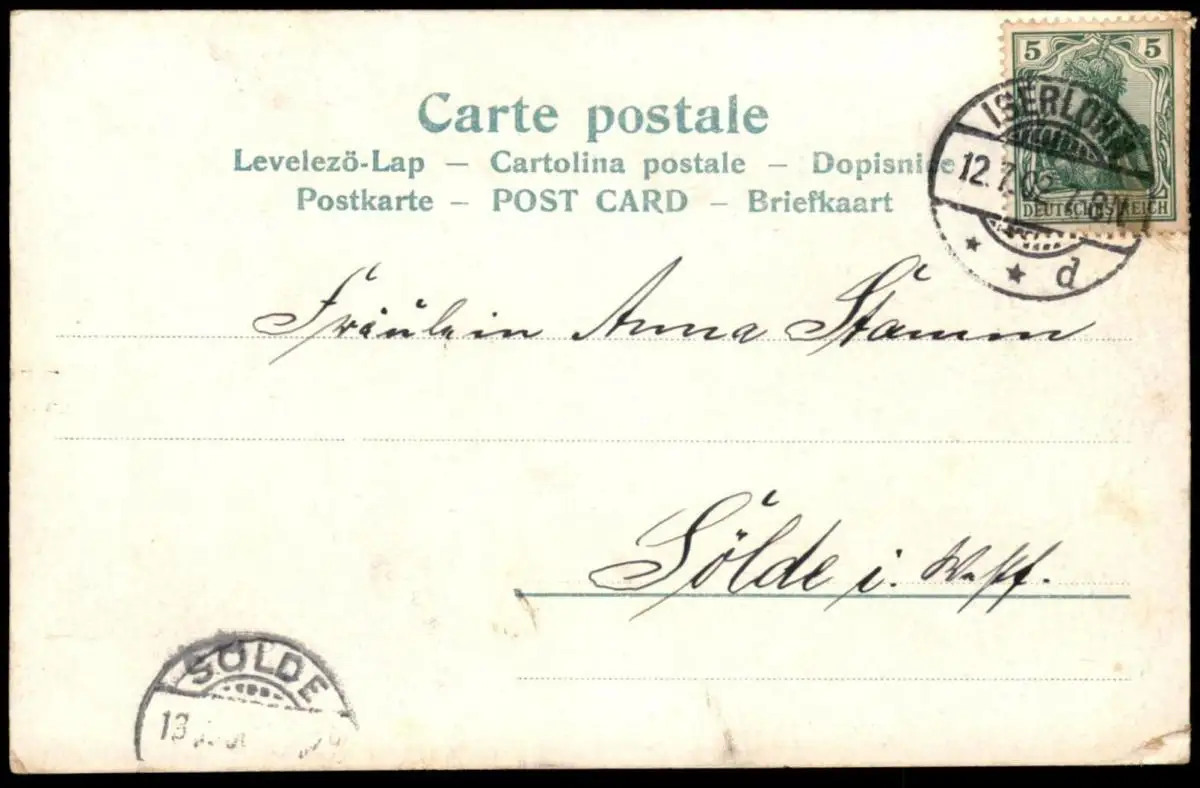 Carte postale
Levelező-Lap — Cartolina postale — Dopisnice
Postkarte — POST CARD — Briefkaart
5 5
DEUTSCHES REICH
ISERLOHN
12.7.02
d
Fräulein Anna Stamm
Sölde i. Westf.
SÖLDE
13